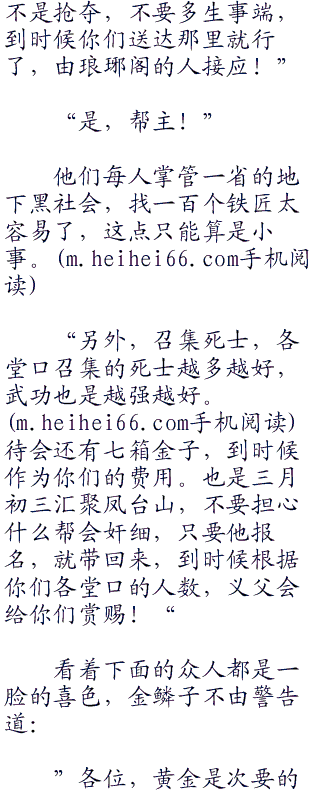 不是抢夺，不要多生事端，
到时候你们送达那里就行
了，由琅琊阁的人接应！”
“是，帮主！”
他们每人掌管一省的地
下黑社会，找一百个铁匠太
容易了，这点只能算是小
事。(m.heihei66.com手机阅
读)
“另外，召集死士，各
堂口召集的死士越多越好，
武功也是越强越好。
(m.heihei66.com手机阅读)
待会还有七箱金子，到时候
作为你们的费用。也是三月
初三汇聚凤台山，不要担心
什么帮会奸细，只要他报
名，就带回来，到时候根据
你们各堂口的人数，义父会
给你们赏赐！“
看着下面的众人都是一
脸的喜色，金鳞子不由警告
道：
”各位，黄金是次要的